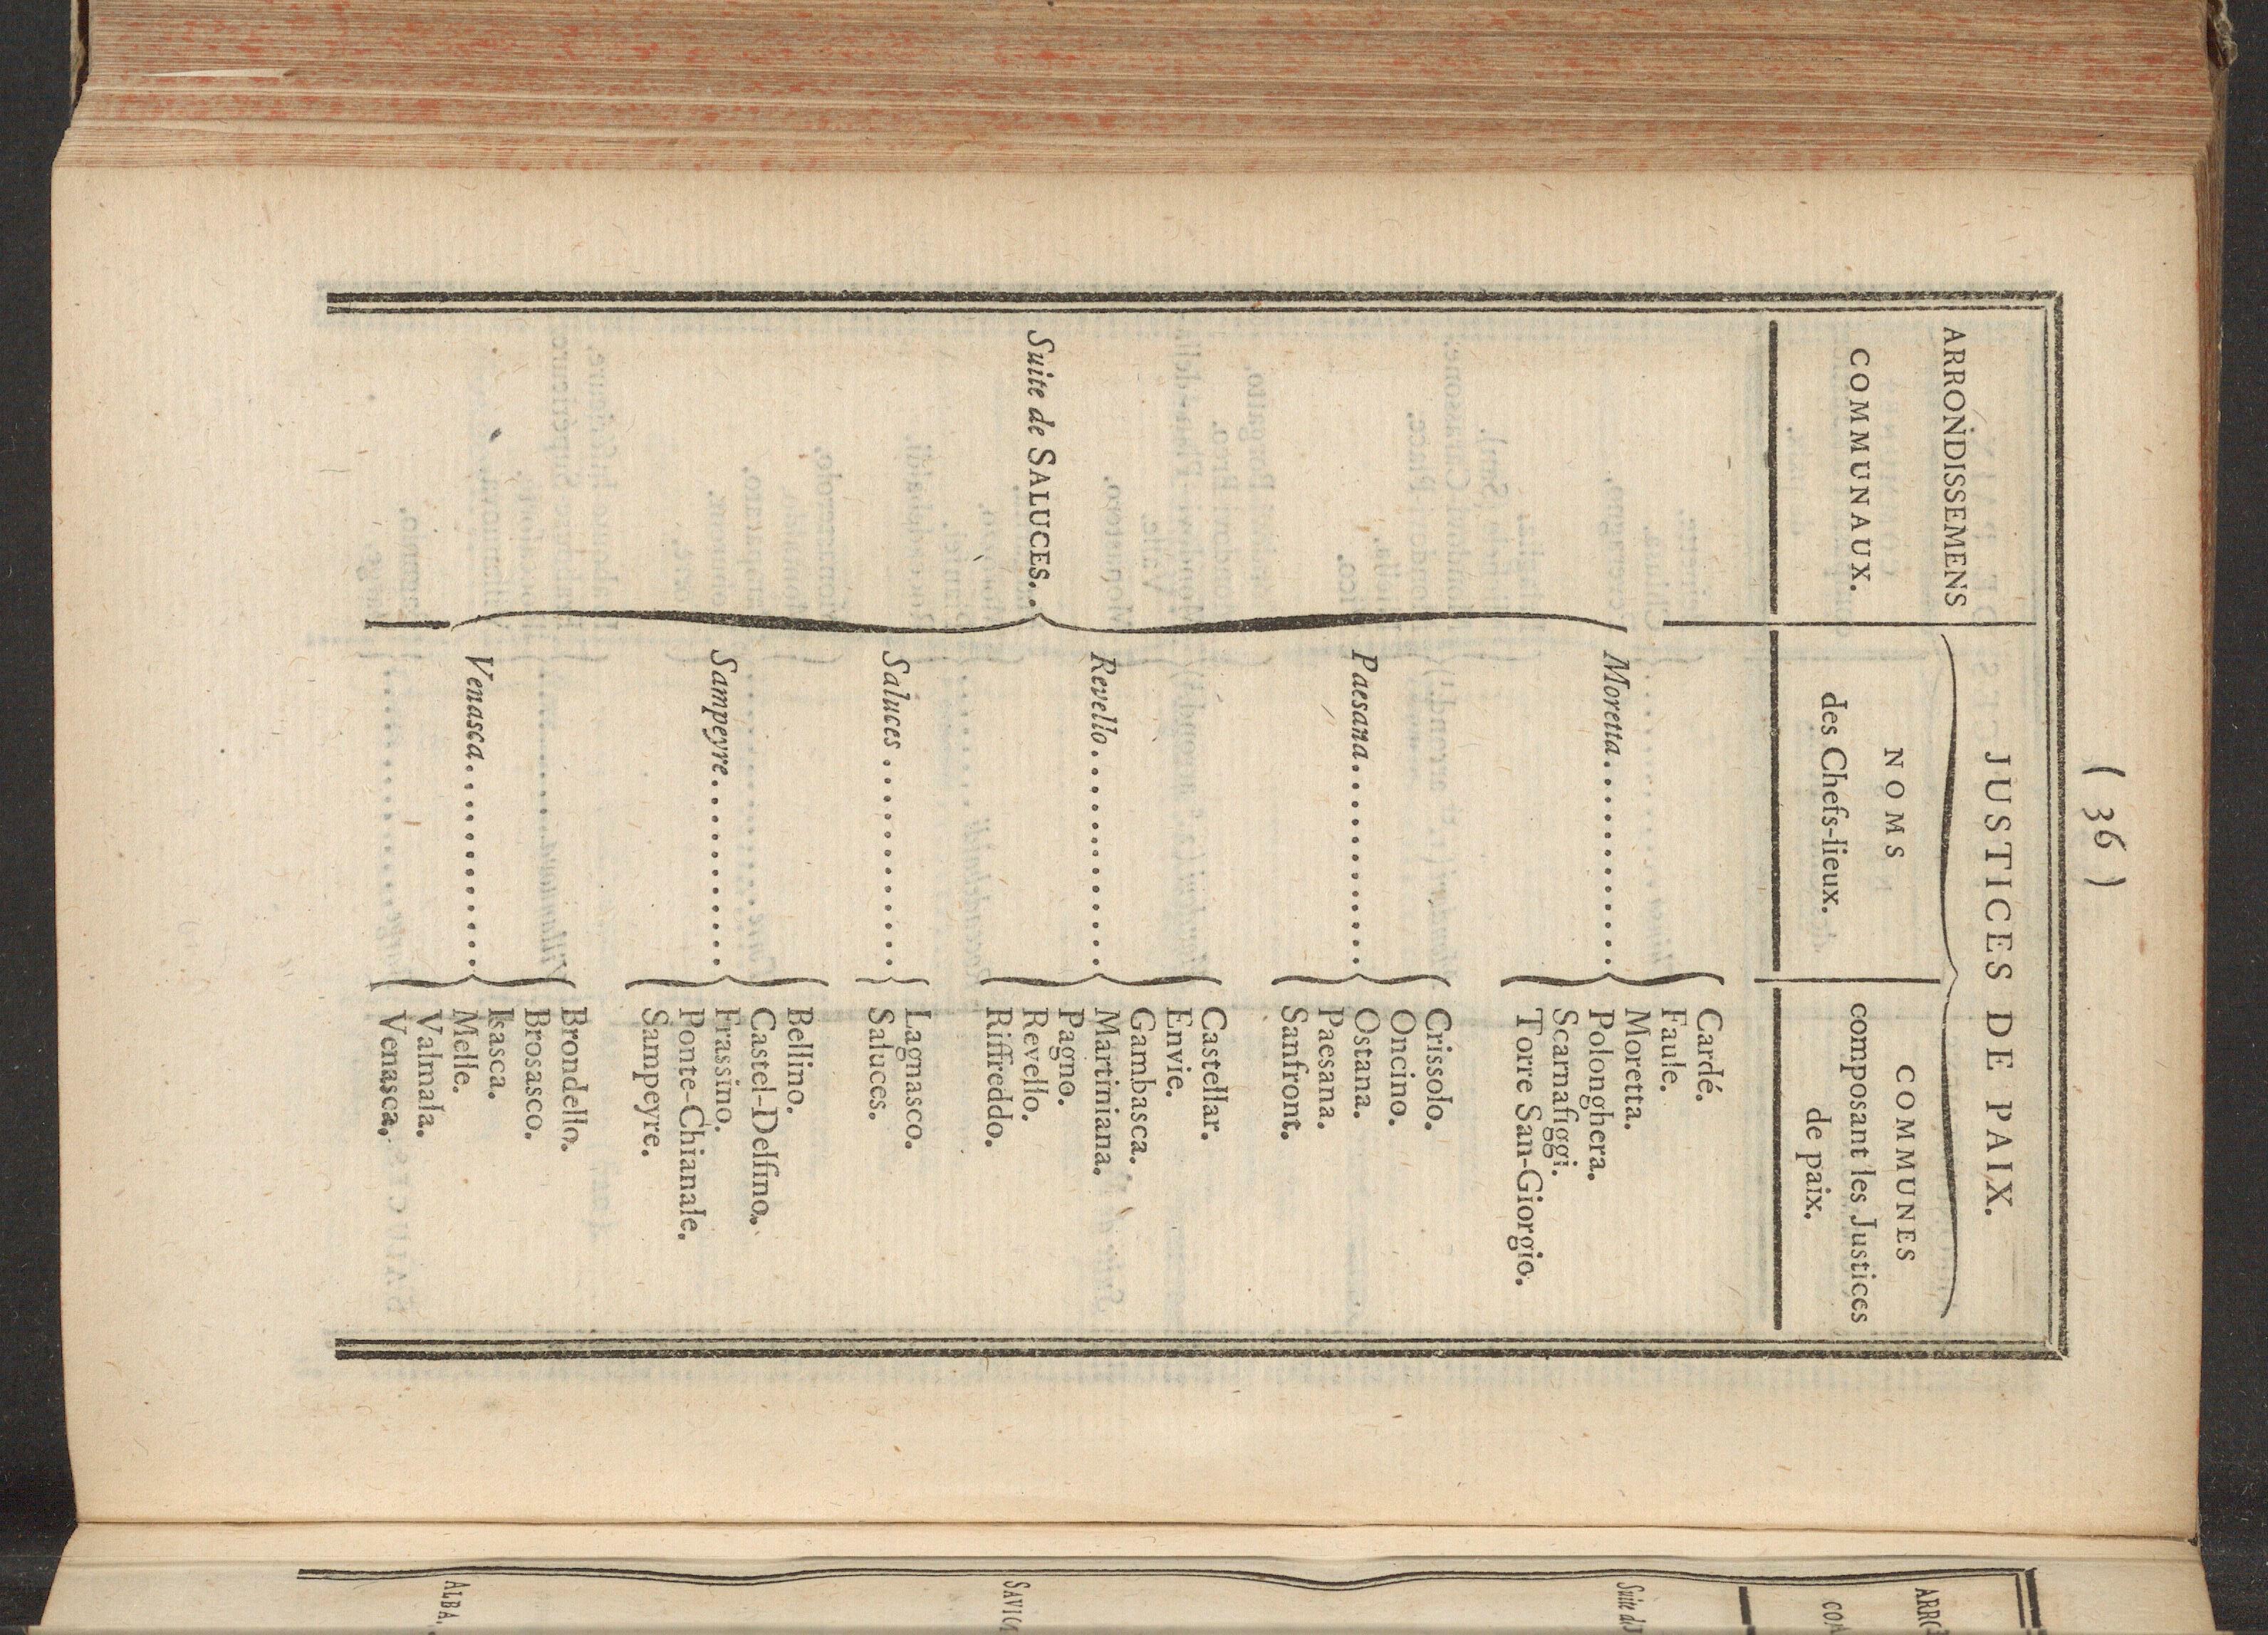 ( 36 )
ARRONDISSEMENS
COMMUNAUX.
JUSTICES DE PAIX.
NOMS
des Chefs-lieux.
COMMUNES
composant les Justices
de paix.
Suite de SALUCES. .
Moretta. . . . . . . . . . . .
Cardé.
Faule.
Moretta.
Polonghera.
Scarnafiggi.
Torre San-Giorgio.
Paesana. . . . . . . . . . . .
Crissolo.
Oncino.
Ostana.
Paesana.
Sanfront.
Revello. . . . . . . . . . . .
Castellar.
Envie.
Gambasca.
Martiniana.
Pagno.
Revello.
Riffreddo.
Saluces . . . . . . . . . . . .
Lagnasco.
Saluces.
Sampeyre. . . . . . . . . . .
Bellino.
Castel-Delfino.
Frassino.
Ponte-Chianale.
Sampeyre.
Venasca. . . . . . . . . . . .
Brondello.
Brosasco.
Isasca.
Melle.
Valmala.
Venasca.
ARRO
COM
Suite d
SAVI
ALBA.